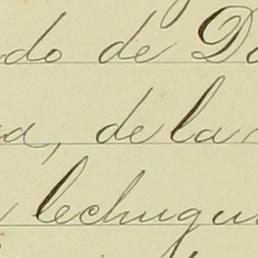 do de D
a, de la
lechugu